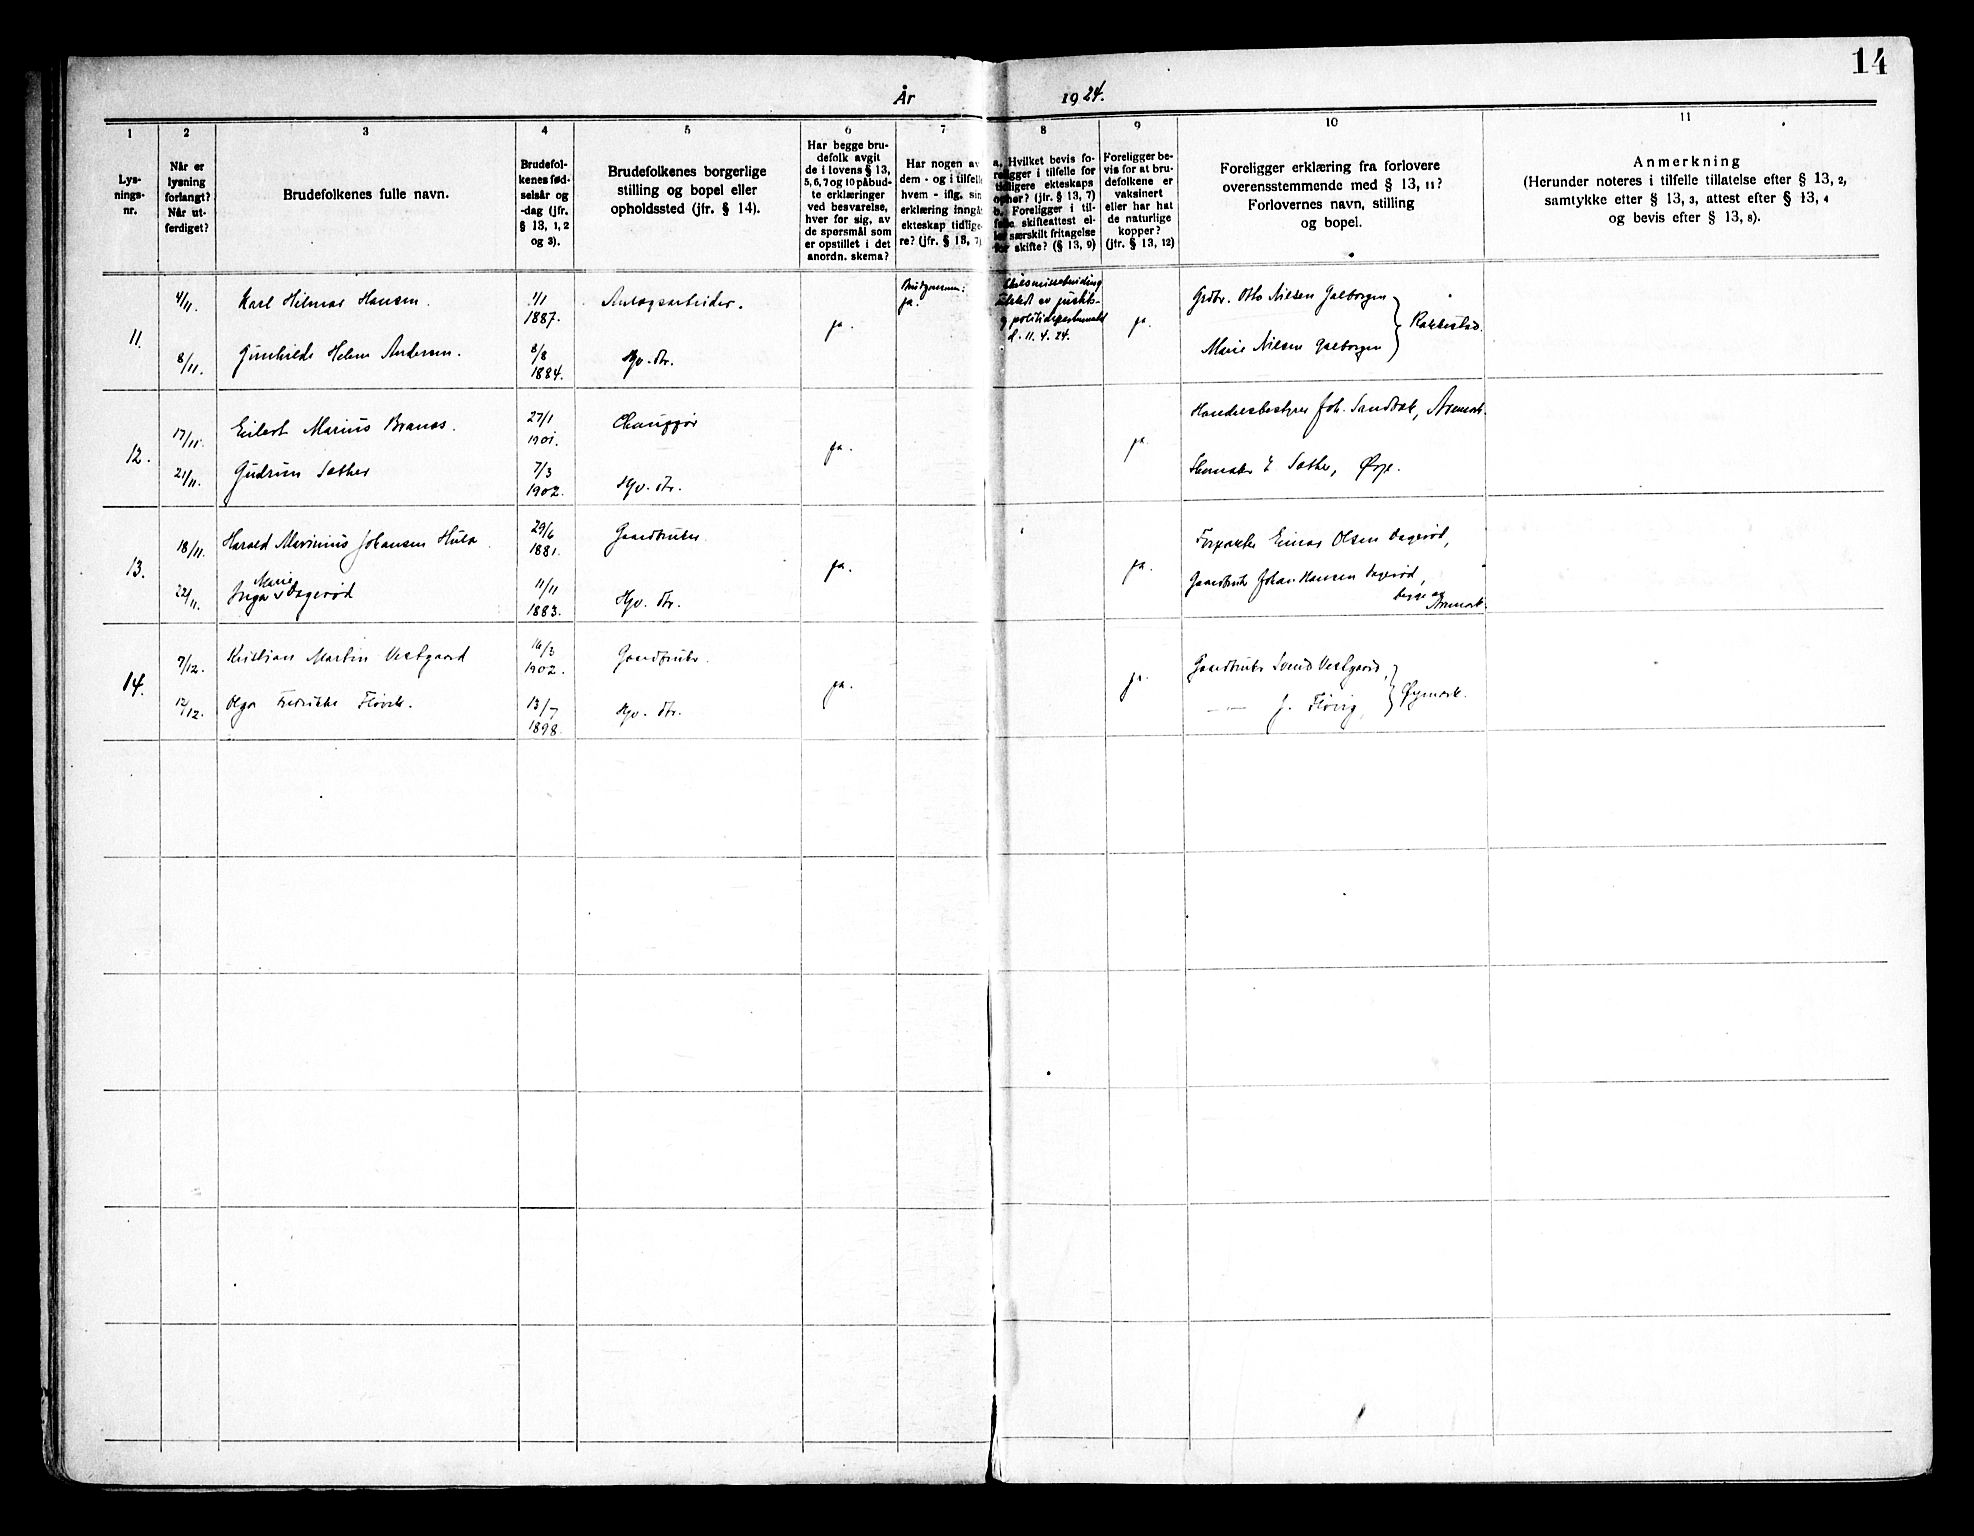 14
År 1924.
1
2
3
4
5
6
7
8
9
10
11
Lys-
nings-
nr.
Når er
lysning
forlangt?
Når ut-
ferdiget?
Brudefolkenes fulle navn.
Brudefol-
kenes fød-
selsår og
-dag (jfr.
§ 13, 1, 2
og 3).
Brudefolkenes borgerlige
stilling og bopel eller
opholdssted (jfr. § 14).
Har begge bru-
defolk avgit
de i lovens § 13,
5, 6, 7 og 10 påbud-
te erklæringer
ved besvarelse,
hver for sig, av
de spørsmål som
er opstillet i det
anordn. skema?
Har nogen av
dem - og i tilfelle
hvem - iflg. sin
erklæring inngå
ekteskap tidlige
re? (jfr. § 13, 7)
a. Hvilket bevis fo-
religger i tilfelle for
tidligere ekteskaps
ophør? (jfr. § 13, 7)
b. Foreligger i til-
felle skifteattest el-
ler særskilt fritagelse
for skifte? (§ 13, 9)
Foreligger be-
vis for at bru-
defolkene er
vaksinert
eller har hat
de naturlige
kopper?
(jfr. § 13, 12)
Foreligger erklæring fra forlovere
overensstemmende med § 13, 11?
Forlovernes navn, stilling
og bopel.
Anmerkning
(Herunder noteres i tilfelle tillatelse efter § 13, 2,
samtykke etter § 13, 3, attest efter § 13, 4
og bevis efter § 13, 8).
11.
4/11.
8/11.
Karl Hilmar Hansen.
1/1
1887.
Anlægsarbeider.
Gunhilde Helene Andersen.
8/8
1884.
Hv. dtr.
ja.
Brudgommen:
ja.
av justits-
og politidepartementet
d. 11. 4. 24.
ja.
Grdbr. Otto Nilsen Galborgen
Marie Nilsen Galborgen
Rakkestad.
12.
17/11.
21/11.
Eilert Marius Braness.
27/1
1901.
Chauffør
Gudrun Sæther
7/3
1902.
Hv. dtr.
ja.
ja.
Handelsbestyrer Joh. Sandbæk, Aremark.
E Sæther, Ørje.
13.
18/11.
22/11.
Harald Marinius Johansen Hula.
29/6
1881.
Gaardbruker
Inga Marie Dagerød
11/11
1883.
Hv. dtr.
ja.
ja.
Forpakter Einar Olsen Dagerød,
Gaardbruk. Johan Hansen Dagerød,
begge av
Aremark.
14.
7/12.
12/12.
Kristian Martin Vestgaard
16/3
1902.
Gaardbruker.
Olga Fredrikke Fløvik.
13/7
1898.
Hv. dtr.
ja.
ja.
Gaardbruker Svend Vestgaard,
— — J. Fløvig,
Øymark.